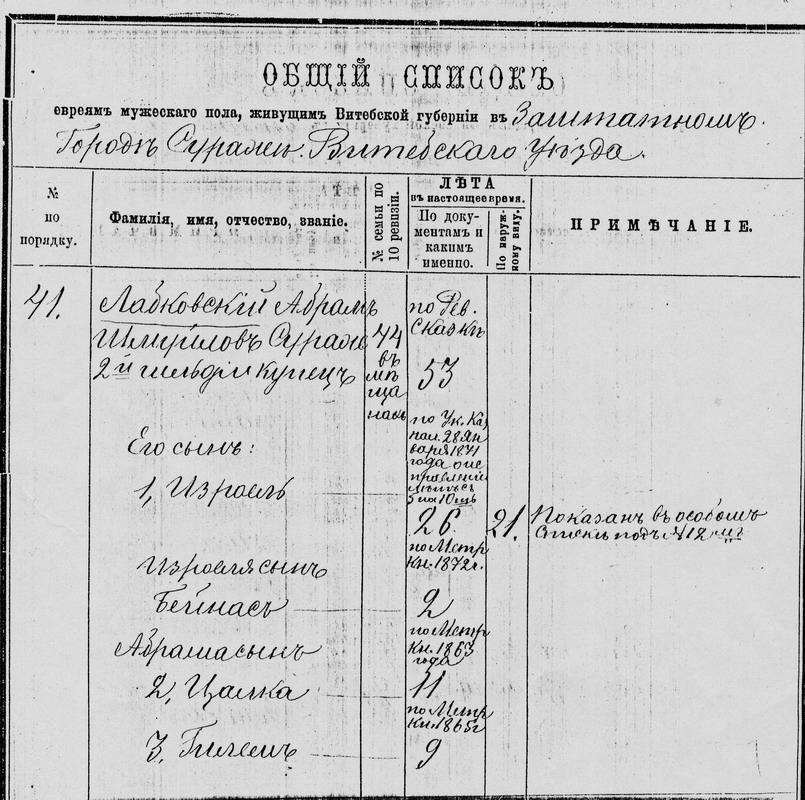 ОБЩІЙ СПИСОКЪ
евреямъ мужескаго пола, живущимъ Витебской губерніи въ Заштатномъ
Городѣ Суражѣ Витебскаго Уѣзда.
№ по порядку.
Фамилія, имя, отчество, званіе.
№ семьи по 10 ревизіи.
ЛѢТА
въ настоящее время.
По документамъ и какимъ именно.
По наружному виду.
ПРИМѢЧАНІЕ.
41.
Лабковскій Абрамъ
Шмуйловъ Сураж
2й гильдіи купецъ
44
въ
мѣ
ща
нахъ
по Рев.
Сказкѣ
53
Его сынъ:
1, Израель
по Ук. Ка
пал. 28 Ян
варя 1871
года о ис
правленіи
лѣтъ съ
5 на 10 ть
26.
21.
Показанъ въ особомъ
спискѣ подъ №12 мъ
Израеля сынъ
Бейнасъ
по Метр
Кн. 1872 г.
2
Абрама сынъ
2, Цалка
по Метр
Кн. 1863
года
11
3, Гилемъ
по Метр
Кн. 1865 г
9